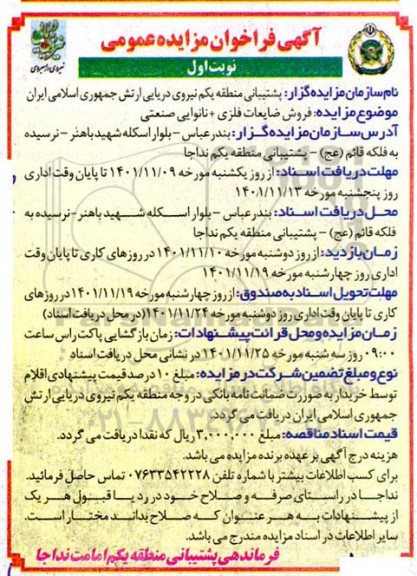 آگهی فراخوان مزایده عمومی
نوبت اول
نام سازمان مزایده گزار: پشتیبانی منطقه یکم نیروی دریایی ارتش جمهوری اسلامی ایران
موضوع مزایده: فروش ضایعات فلزی + نانوایی صنعتی
آدرس سازمان مزایده گزار: بندرعباس - بلوار اسکله شهید باهنر - نرسیده
به فلکه قائم (عج) - پشتیبانی منطقه یکم نداجا
مهلت دریافت اسناد: از روز یکشنبه مورخه ۱۴۰۱/۱۱/۰۹ تا پایان وقت اداری
روز پنجشنبه مورخه ۱۴۰۱/۱۱/۱۳
محل دریافت اسناد: بندرعباس - بلوار اسکله شهید باهنر - نرسیده به
فلکه قائم (عج) - پشتیبانی منطقه یکم نداجا
زمان بازدید: از روز دوشنبه مورخه ۱۴۰۱/۱۱/۱۰ در روزهای کاری تا پایان وقت
اداری روز چهارشنبه مورخه ۱۴۰۱/۱۱/۱۹
مهلت تحویل اسناد به صندوق: از روز چهارشنبه مورخه ۱۴۰۱/۱۱/۱۹ در روزهای
کاری تا پایان وقت اداری روز دوشنبه مورخه ۱۴۰۱/۱۱/۲۴ (در محل دریافت اسناد)
زمان مزایده و محل قرائت پیشنهادات: زمان بازگشایی پاکت راس ساعت
۰۹:۰۰ روز سه شنبه مورخه ۱۴۰۱/۱۱/۲۵ در نشانی محل دریافت اسناد
نوع و مبلغ تضمین شرکت در مزایده: مبلغ ۱۰ درصد قیمت پیشنهادی اقلام
توسط خریدار به صورت ضمانت نامه بانکی در وجه منطقه یکم نیروی دریایی ارتش
جمهوری اسلامی ایران دریافت می گردد.
قیمت اسناد مناقصه: مبلغ ۳,۰۰۰,۰۰۰ ریال که نقدا دریافت می گردد.
هزینه درج آگهی بر عهده برنده مزایده می باشد.
برای کسب اطلاعات بیشتر با شماره تلفن ۰۷۶۳۳۵۴۲۲۲۸ تماس حاصل فرمائید.
نداجا در راستای صرفه و صلاح خود در رد یا قبول هر یک
از پیشنهادات به هر عنوان که صلاح بداند مختار است.
سایر اطلاعات در اسناد مزایده مندرج می باشد.
فرماندهی پشتیبانی منطقه یکم امامت نداجا